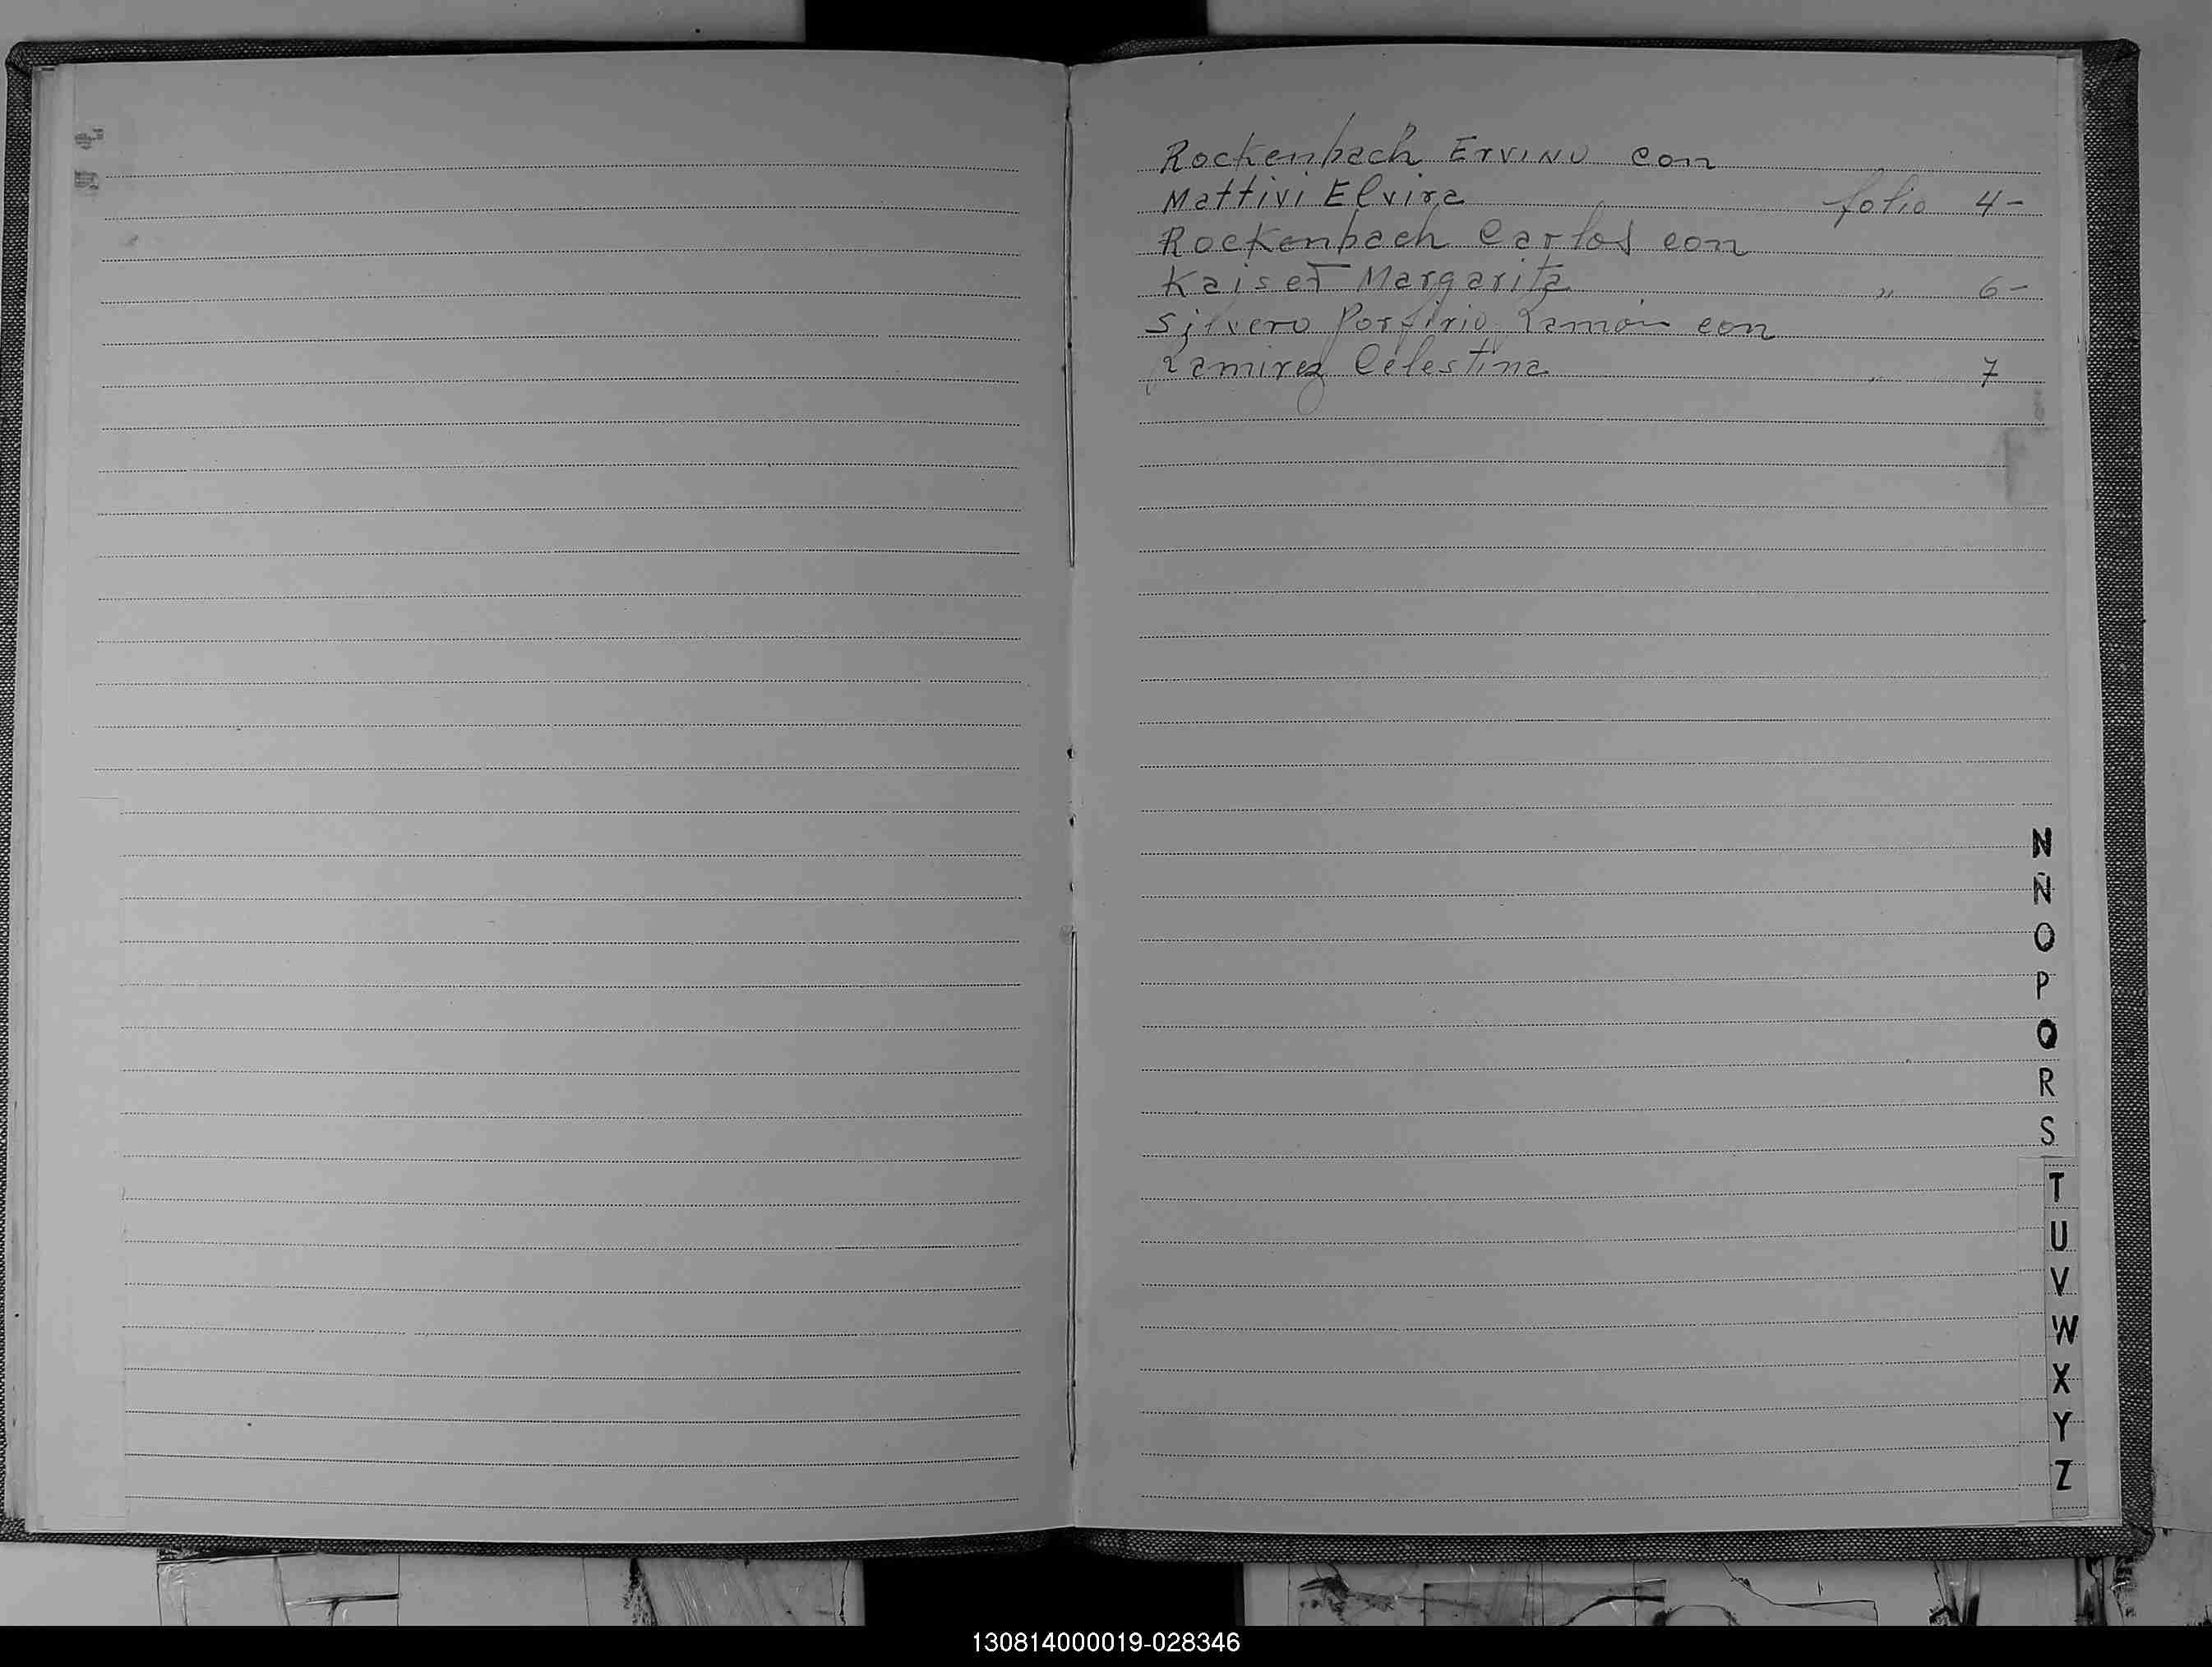 Rockenbach Ervino con
Mattivi Elvira folio 4-
Rockenbach Carlos con
Kaiser Margarita " 6-
Silvero Porfirio Ramón con
Ramirez Celestina " 7
N
Ñ
O
P
Q
R
S
T
U
V
W
X
Y
Z
130814000019-028346